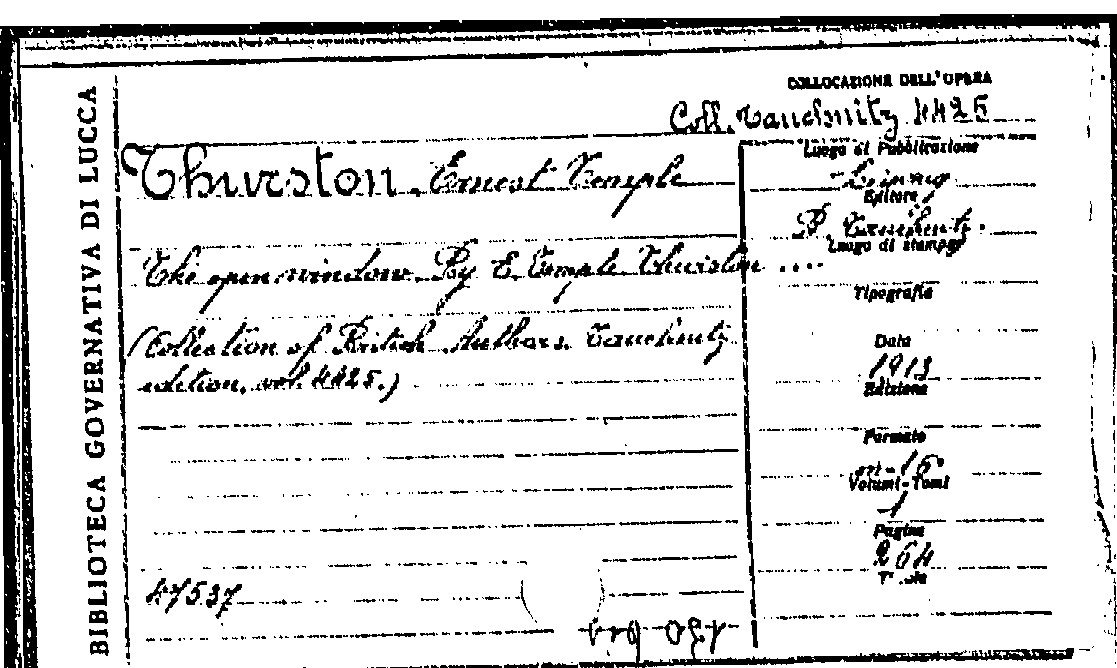 BIBLIOTECA GOVERNATIVA DI LUCCA
COLLOCAZIONE DELL'OPERA
Coll. Tauchnitz 4425
Thurston Ernest Temple
The open window. By E. Temple Thurston ....
(Collection of British Authors. Tauchnitz
edition, vol. 4425.)
47537
Luogo di Pubblicazione
Editore
B. Tauchnitz.
Luogo di stampa
Tipografia
Data
1913
Edizione
Formato
in-16°
Volumi-Tomi
1
Pagine
264